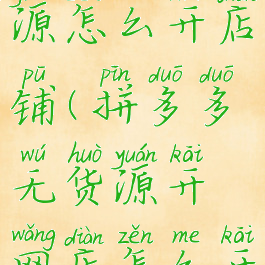 源怎么开店
pū pīn duō duō
铺(拼多多
wú huò yuán kāi
无货源开
wǎng diàn zěn me kāi
网店怎么开